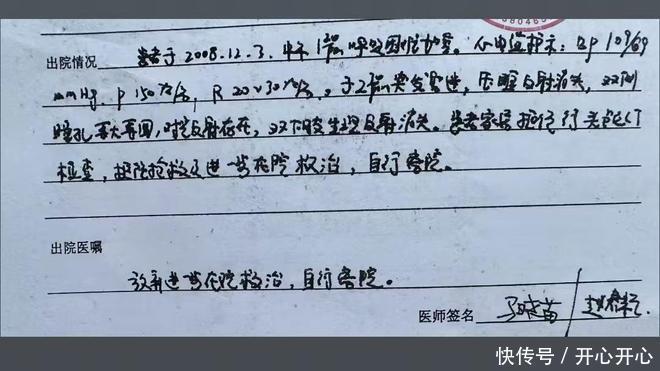 出院情况 患者于2008.12.3. 呼吸困难加重。心电监护示：Bp 109/69
mmHg. P 150次/分, R 20~30次/分。于 突发昏迷，压眶反射消失，双侧
瞳孔等大等圆，对光反射存在，双下肢生理反射消失。患者家属拒绝行
检查，拒绝抢救及进一步在院救治，自行离院。
出院医嘱
放弃进一步在院救治，自行离院。
医师签名
快传号／开心开心